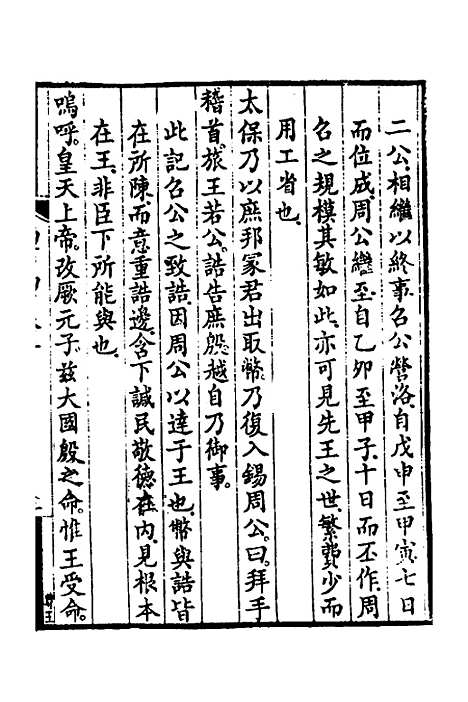 二公相繼以終事召公營洛自戊申至甲寅七日
而位成周公繼至自乙卯至甲子十日而丕作周
召之規模其敏如此亦可見先王之世繁費少而
用工省也
太保乃以庶邦冢君出取幣乃復入錫周公曰拜手
稽首旅王若公誥告庶殷越自乃御事
此記召公之致誥因周公以達于王也幣與誥皆
在所陳而意重誥邊含下諴民敬德在內見根本
在王非臣下所能與也
嗚呼皇天上帝改厥元子茲大國殷之命惟王受命